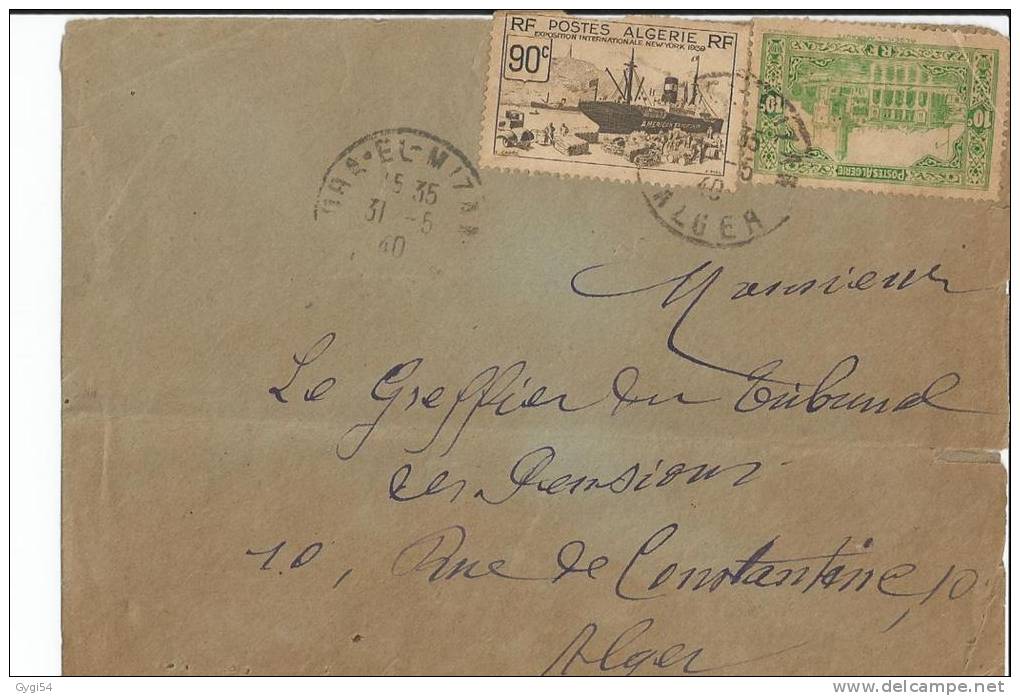 RF POSTES ALGERIE RF
EXPOSITION INTERNATIONALE NEW YORK 1939
90c
10c 10c
POSTES ALGERIE
RF
DRA-EL-MIZAN
15 35
31 -5
40
ALGER
Monsieur
Le Greffier du Tribunal
des Pensions
10, Rue de Constantine, 10
Alger
Gygi54
www.delcampe.net